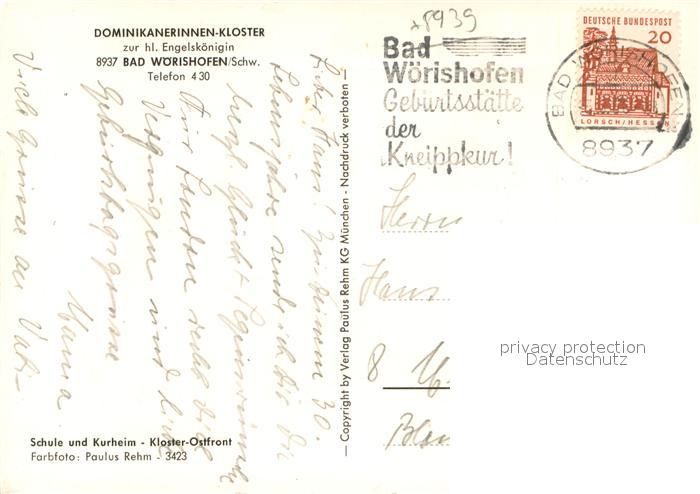 DOMINIKANERINNEN-KLOSTER
zur hl. Engelskönigin
8937 BAD WÖRISHOFEN/Schw.
Telefon 430
Lieber Hans! Zu Deinem 30.
Lebensjahre sende ich Dir die
herzl. Glück + Segenswünsche
Zur Stunden recht viel
Vergnügen und liebe
Geburtstagsgrüsse
Mama
Viele Grüsse an Vati
Schule und Kurheim - Kloster-Ostfront
Farbfoto: Paulus Rehm - 3423
— Copyright by Verlag Paulus Rehm KG München - Nachdruck verboten —
x8939
Bad
Wörishofen
Geburtsstätte
der
Kneippkur!
DEUTSCHE BUNDESPOST
20
LORSCH/HESSEN
BAD WÖRISHOFEN
8937
Herrn
Hans
8
privacy protection
Datenschutz